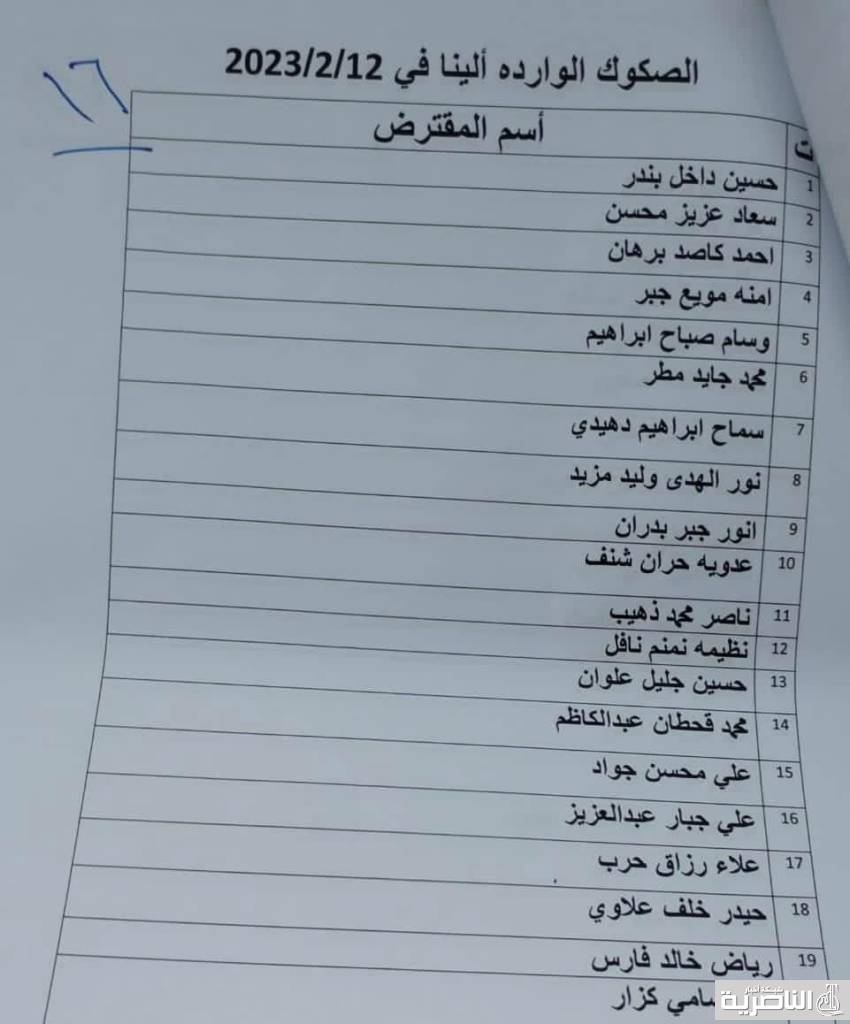 الصكوك الوارده ألينا في 2023/2/12
١٦
ت أسم المقترض
1 حسين داخل بندر
2 سعاد عزيز محسن
3 احمد كاصد برهان
4 امنه مويع جبر
5 وسام صباح ابراهيم
6 محمد جايد مطر
7 سماح ابراهيم دهيدي
8 نور الهدى وليد مزيد
9 انور جبر بدران
10 عدويه حران شنف
11 ناصر محمد ذهيب
12 نظيمه نمنم نافل
13 حسين جليل علوان
14 محمد قحطان عبدالكاظم
15 علي محسن جواد
16 علي جبار عبدالعزيز
17 علاء رزاق حرب
18 حيدر خلف علاوي
19 رياض خالد فارس
سامي كزار
شبكة أخبار
الناصرية